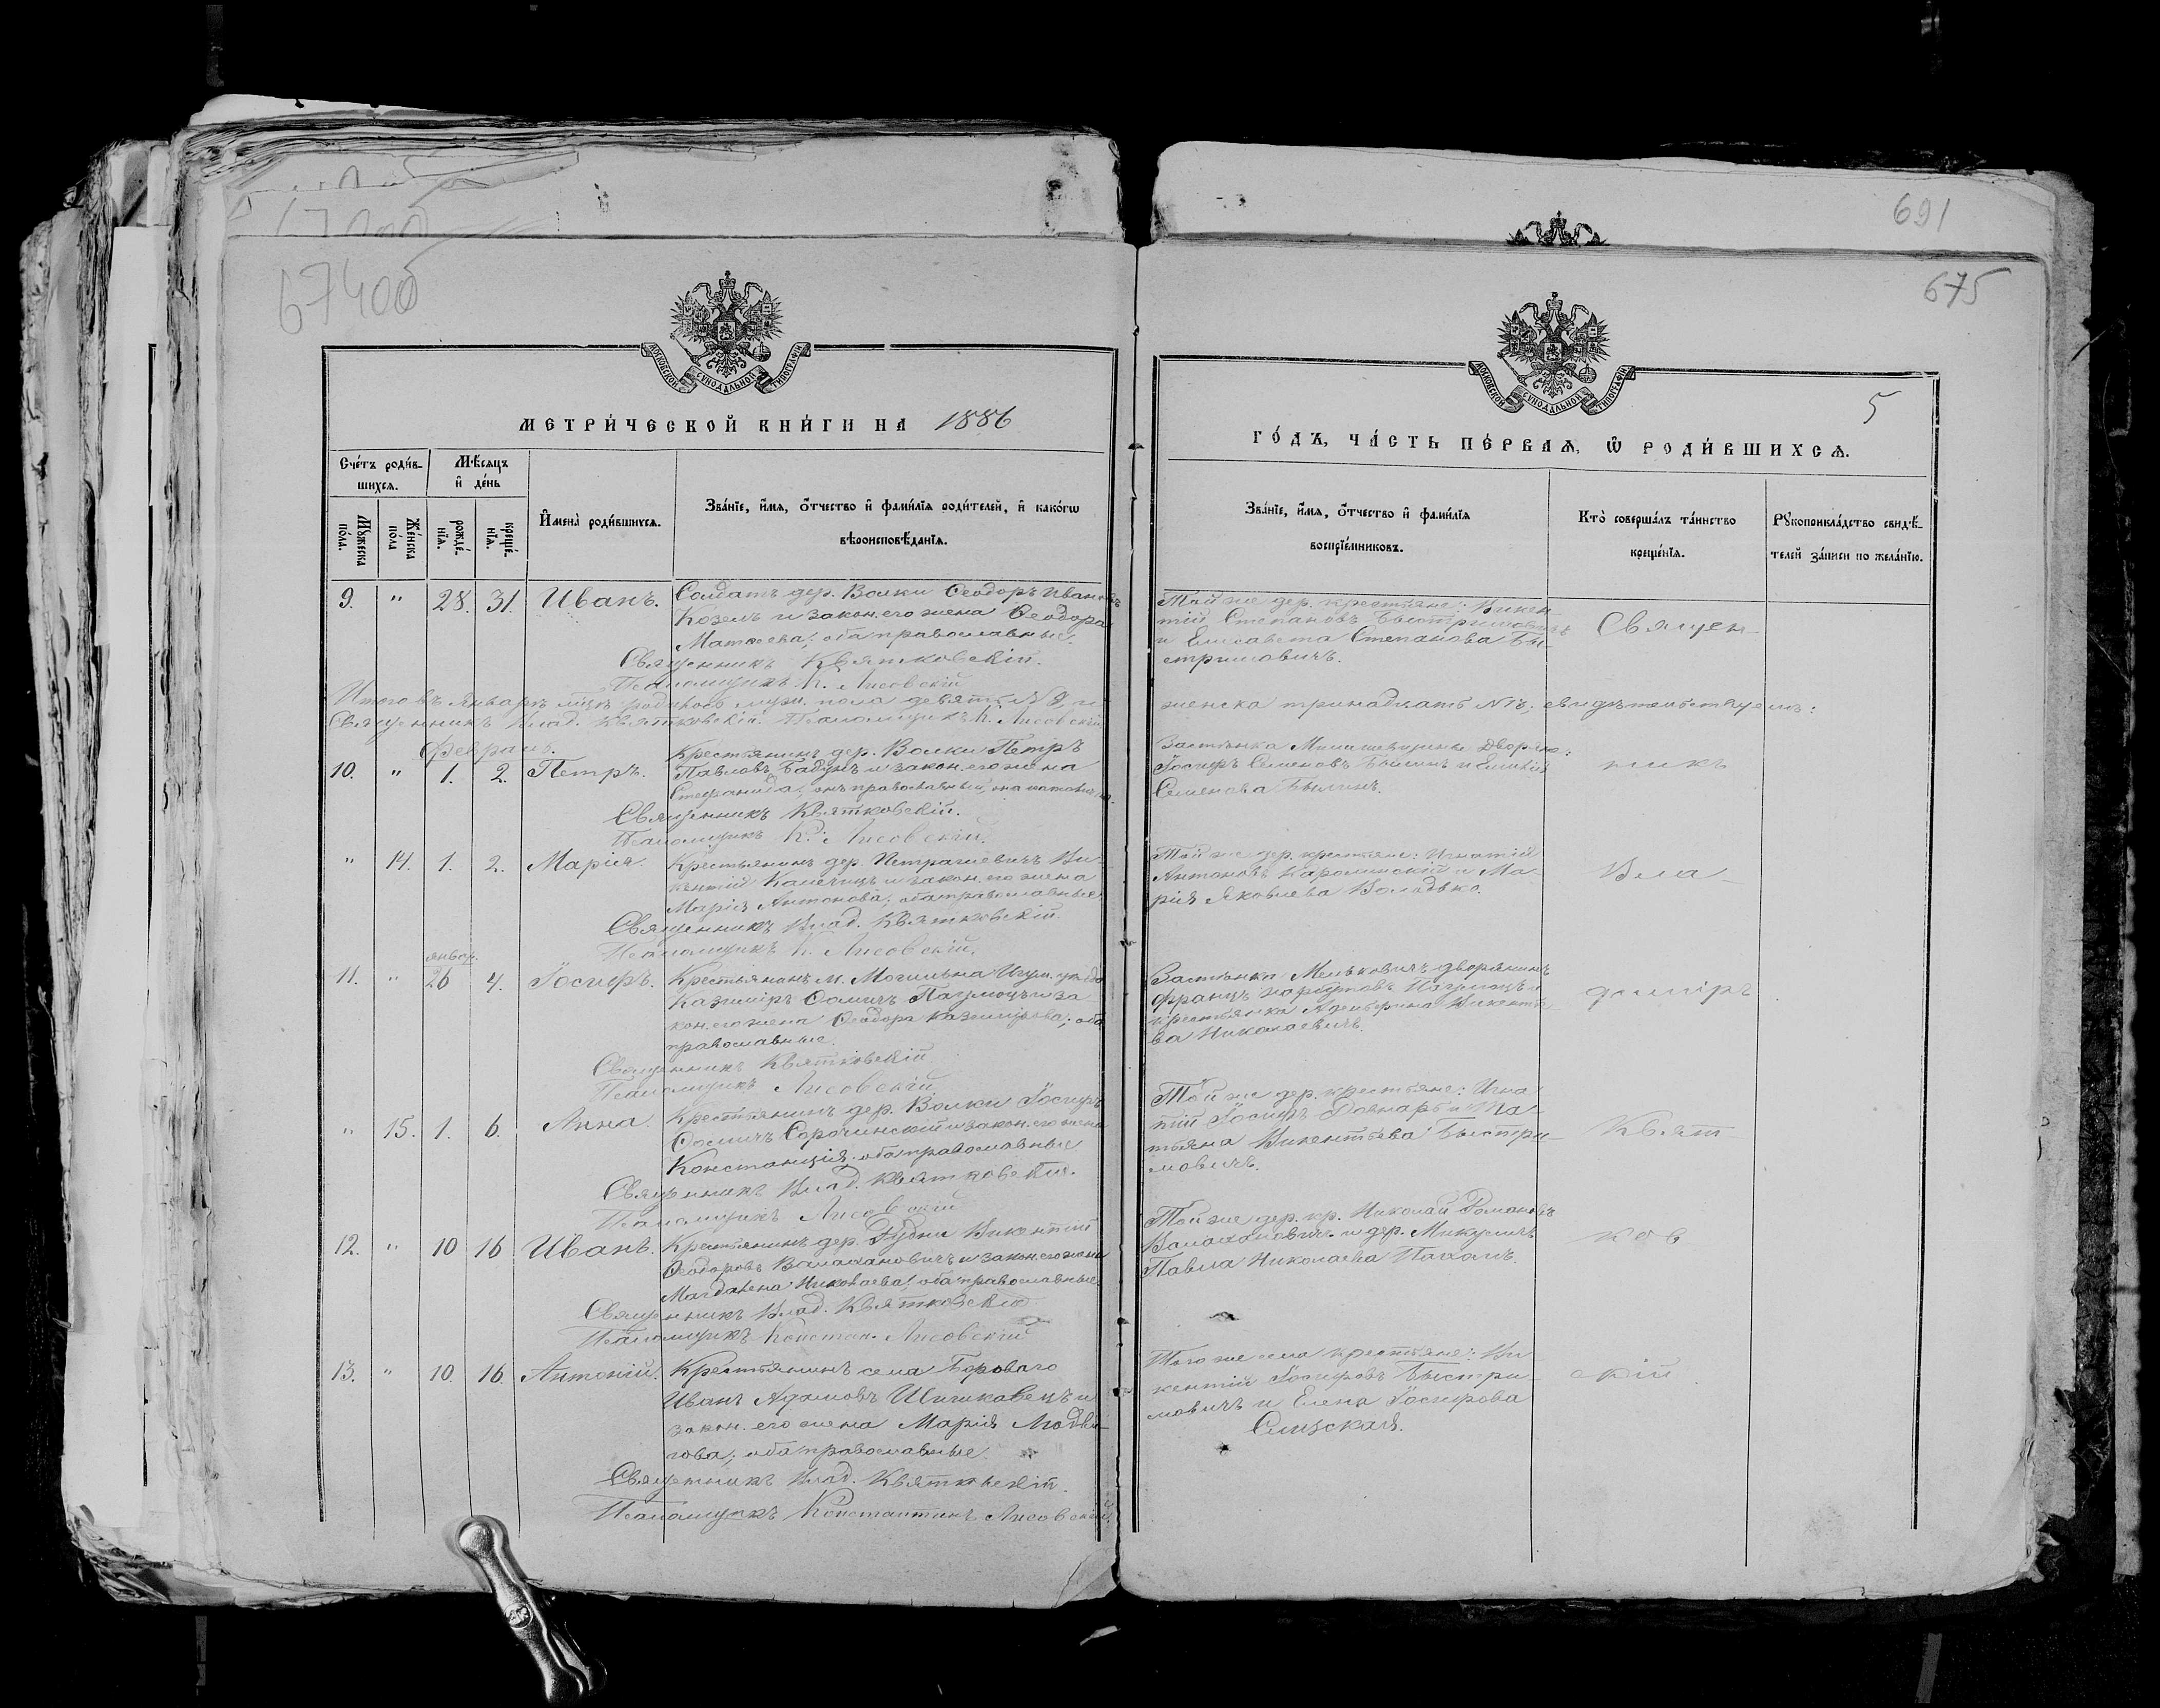 691
675
67400
МЕТРИ́ЧЕСКОЙ КНИ́ГИ НА 1886
ГО́ДЪ, ЧА́СТЬ ПЕ́РВАѦ, Ѽ РОДИ́ВШИХСѦ.
5
МОСКОВСКОЙ СѴНОДАЛЬНОЙ ТИПОГРАФІИ
МОСКОВСКОЙ СѴНОДАЛЬНОЙ ТИПОГРАФІИ
Сче́тъ роди́в-
шихсѧ.
Мѣ́сѧцъ
и҆ де́нь
Мꙋ́жеска по́ла.
Же́нска по́ла
рожде́-
нїѧ.
креще́-
нїѧ.
И҆мена̀ роди́вшихсѧ.
Зва́нїе, и҆́мѧ, ѻ҆́тчество и҆ фами́лїѧ роди́телей, и҆ како́гѡ
вѣроисповѣ́данїѧ.
Зва́нїе, и҆́мѧ, ѻ҆́тчество и҆ фами́лїѧ
воспрїе́мниковъ.
Кто̀ соверша́лъ та́инство
креще́нїѧ.
Рꙋкоприкла́дство свидѣ́-
телей за́писи по жела́нїю.
9. " 28. 31. Иванъ. Солдатъ дер. Волки Ѳеодоръ Ивановъ
Козелъ и закон. его жена Ѳеодора
Матвеева; оба православные.
Священникъ Квятковскій.
Псаломщикъ К. Лисовскій
Той же дер. крестьяне: Викен-
тій Степановъ Быстримовичъ
и Елисавета Степанова Бы-
стримовичъ.
Священ-
Итого въ Январѣ м-цѣ родилось муж. пола девять № 9, и
женска тринадцать № 13; свидѣтельствуемъ:
Священникъ Влад. Квятковскій. Псаломщикъ К. Лисовскій
Февраль.
10. " 1. 2. Петръ. Крестьянинъ дер. Волки Петръ
Павловъ Бабунъ и закон. его жена
Стефанида; онъ православный, она
Священникъ Квятковскій.
Псаломщикъ К. Лисовскій.
Застѣнка дворяне:
Іосифъ Семеновъ и
Семенова
никъ
" 14. 1. 2. Марія. Крестьянинъ дер. Петрашевичъ Ви-
кентій Капечицъ и закон. его жена
Марія Антонова; оба православные
Священникъ Влад. Квятковскій.
Псаломщикъ К. Лисовскій.
Той же дер. крестьяне: Игнатій
Антоновъ Каролинскій и Ма-
рія Яковлева Володько.
Вла-
январ.
11. " 26 4. Іосифъ. Крестьянинъ м. Могильна Игум. уѣзда
Казиміръ Ѳомичъ и за-
кон. его жена Ѳеодора Казимірова; оба
православные.
Священникъ Квятковскій
Псаломщикъ Лисовскій
Застѣнка дворянинъ
Францъ и
крестьянка Викентье-
ва Николаевичъ.
диміръ
" 15. 1. 6. Анна. Крестьянинъ дер. Волки Іосифъ
Ѳомичъ Сорочинскій и закон. его жена
Констанція; оба православные
Священникъ Влад. Квятковскій.
Псаломщикъ Лисовскій
Той же дер. крестьяне: Игна-
тій Іосифъ и Та-
тьяна Викентьева Быстри-
мовичъ.
Квят
12. " 10 16 Иванъ. Крестьянинъ дер. Рудни Викентій
Ѳеодоровъ Валахановичъ и закон. его жена
Магдалена Николаева; оба православные.
Священникъ Влад. Квятковскій
Псаломщикъ Констан. Лисовскій
Той же дер. кр. Николай Романовъ
Валахановичъ и дер. Микуличъ
Павла Николаева
ков
13. " 10. 16. Антоній. Крестьянинъ села Бороваго
Иванъ Адамовъ Шишковецъ и
закон. его жена Марія Людви-
гова; оба православные.
Священникъ Влад. Квятковскій.
Псаломщикъ Константинъ Лисовскій.
Того же села крестьяне: Ви-
кентій Іосифовъ Быстри-
мовичъ и Елена Іосифова
скій.